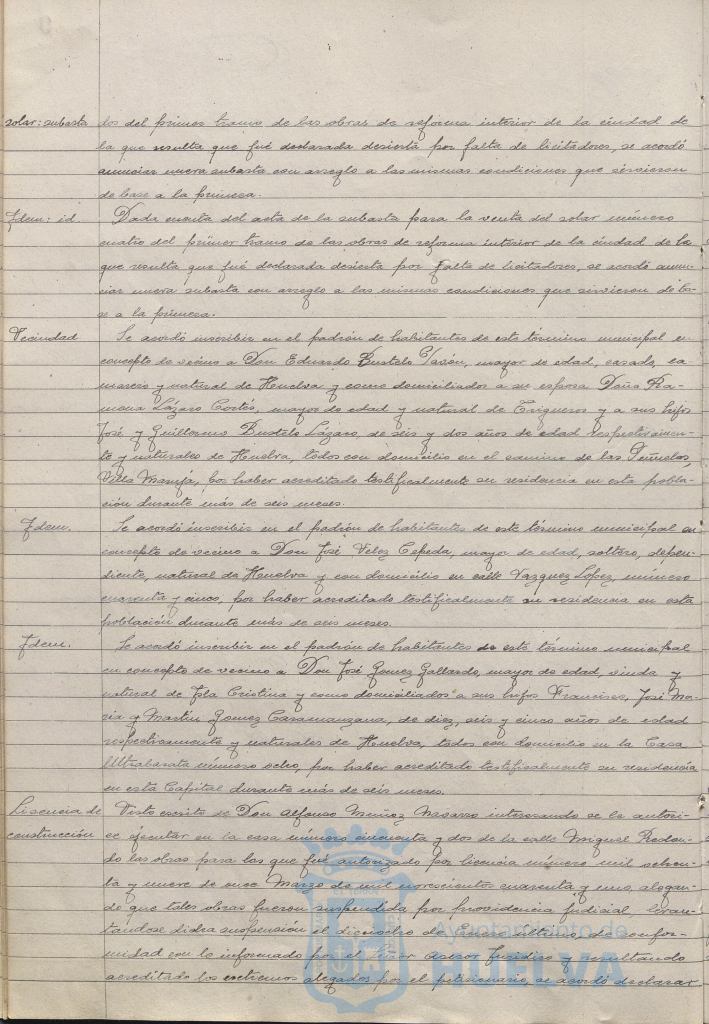 solar: subasta dos del primer tramo de las obras de reforma interior de la ciudad de
la que resulta que fué declarada desierta por falta de licitadores, se acordó
anunciar nueva subasta con arreglo a las mismas condiciones que sirvieron
de base a la primera.
Idem: id. Dada cuenta del acta de la subasta para la venta del solar número
cuatro del primer tramo de las obras de reforma interior de la ciudad de la
que resulta que fué declarada desierta por falta de licitadores, se acordó anun-
ciar nueva subasta con arreglo a las mismas condiciones que sirvieron de ba-
se a la primera.
Vecindad Se acordó inscribir en el padrón de habitantes de este término municipal en
concepto de vecino a Don Eduardo Bustelo Pavón, mayor de edad, casado, co-
mercio y natural de Huelva y como domiciliados a su esposa Doña Ra-
mona Lázaro Cortés, mayor de edad y natural de Trigueros y a sus hijos
José y Guillermo Bustelo Lázaro, de seis y dos años de edad respectivamen-
te y naturales de Huelva, todos con domicilio en el camino de las
Villa por haber acreditado testificalmente su residencia en esta pobla-
ción durante más de seis meses.
Idem. Se acordó inscribir en el padrón de habitantes de este término municipal en
concepto de vecino a Don José Velez Cepeda, mayor de edad, soltero, depen-
diente, natural de Huelva y con domicilio en calle Vazquez López, número
cuarenta y cinco, por haber acreditado testificalmente su residencia en esta
población durante más de seis meses.
Idem. Se acordó inscribir en el padrón de habitantes de este término municipal
en concepto de vecino a Don José Gomez Gallardo, mayor de edad, viudo y
natural de Isla Cristina y como domiciliados a sus hijos Francisco, José Ma-
ria y Martin Gomez Casamanzana, de diez, seis y cinco años de edad
respectivamente y naturales de Huelva, todos con domicilio en la Casa
Ultrabarata número ocho, por haber acreditado testificalmente su residencia
en esta Capital durante más de seis meses.
Liscencia de Visto escrito de Don Alfonso Muñoz interesando se le autori-
construcción ce ejecutar en la casa número cincuenta y dos de la calle Miguel Redon-
do las obras para las que fué autorizado por licencia número mil
ta y nueve de once Marzo de mil novecientos cuarenta y uno, alegan-
do que tales obras fueron suspendida por providencia judicial, levan-
tándose dicha suspensión el dieciocho de Enero último, de confor-
midad con lo informado por el Señor Asesor Jurídico y resultando
acreditado los extremos alegados por el peticionario, se acordó declarar
Ayuntamiento de
HUELVA